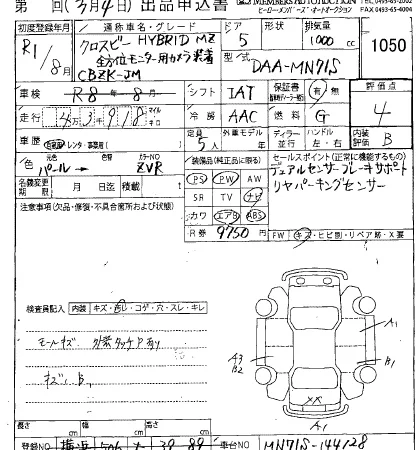 第 回(3月4日)出品申込書
MEMBERS AUTO AUCTION
ヒーロー・メンバーズ・オートオークション FAX 0493-65-4004
初度登録年月 通称車名・グレード ドア 形状 排気量
R1/8月 クロスビー HYBRID MZ 5 1000cc 1050
全方位モニター用カメラ装着
CBZK-JM 型式 DAA-MN71S
車検 R8年8月 シフト IAT 保証書 有・無 評価点 4
走行 43918 マイル キロ 冷房 AAC 燃料 G
車歴 自家用・レンタ・事業用 定員 5人 外装モデル 年 ディーラー 並行 ハンドル 左・右 内装評価 B
色 元色 パール→ カラーNO ZVR
装備品(純正品に限る) セールスポイント(正常に機能するもの)
PS PW AW デュアルセンサーブレーキサポート
名義変更期限 月 日迄 積載 t
SR TV ナビ リヤパーキングセンサー
注意事項(欠品・修復・不具合箇所および状態)
カワ エアB ABS
R券 9750 FW キズ・ヒビ割・リペア跡・X要
検査員記入 内装 キズ・汚レ・コゲ・穴・スレ・キレ
モールキズ 外装タッチPあり
キズ、B、
A1
A3
B2
XX
A1
長さ 幅 高さ
登録NO 横浜 506 車台NO MN71S-144128